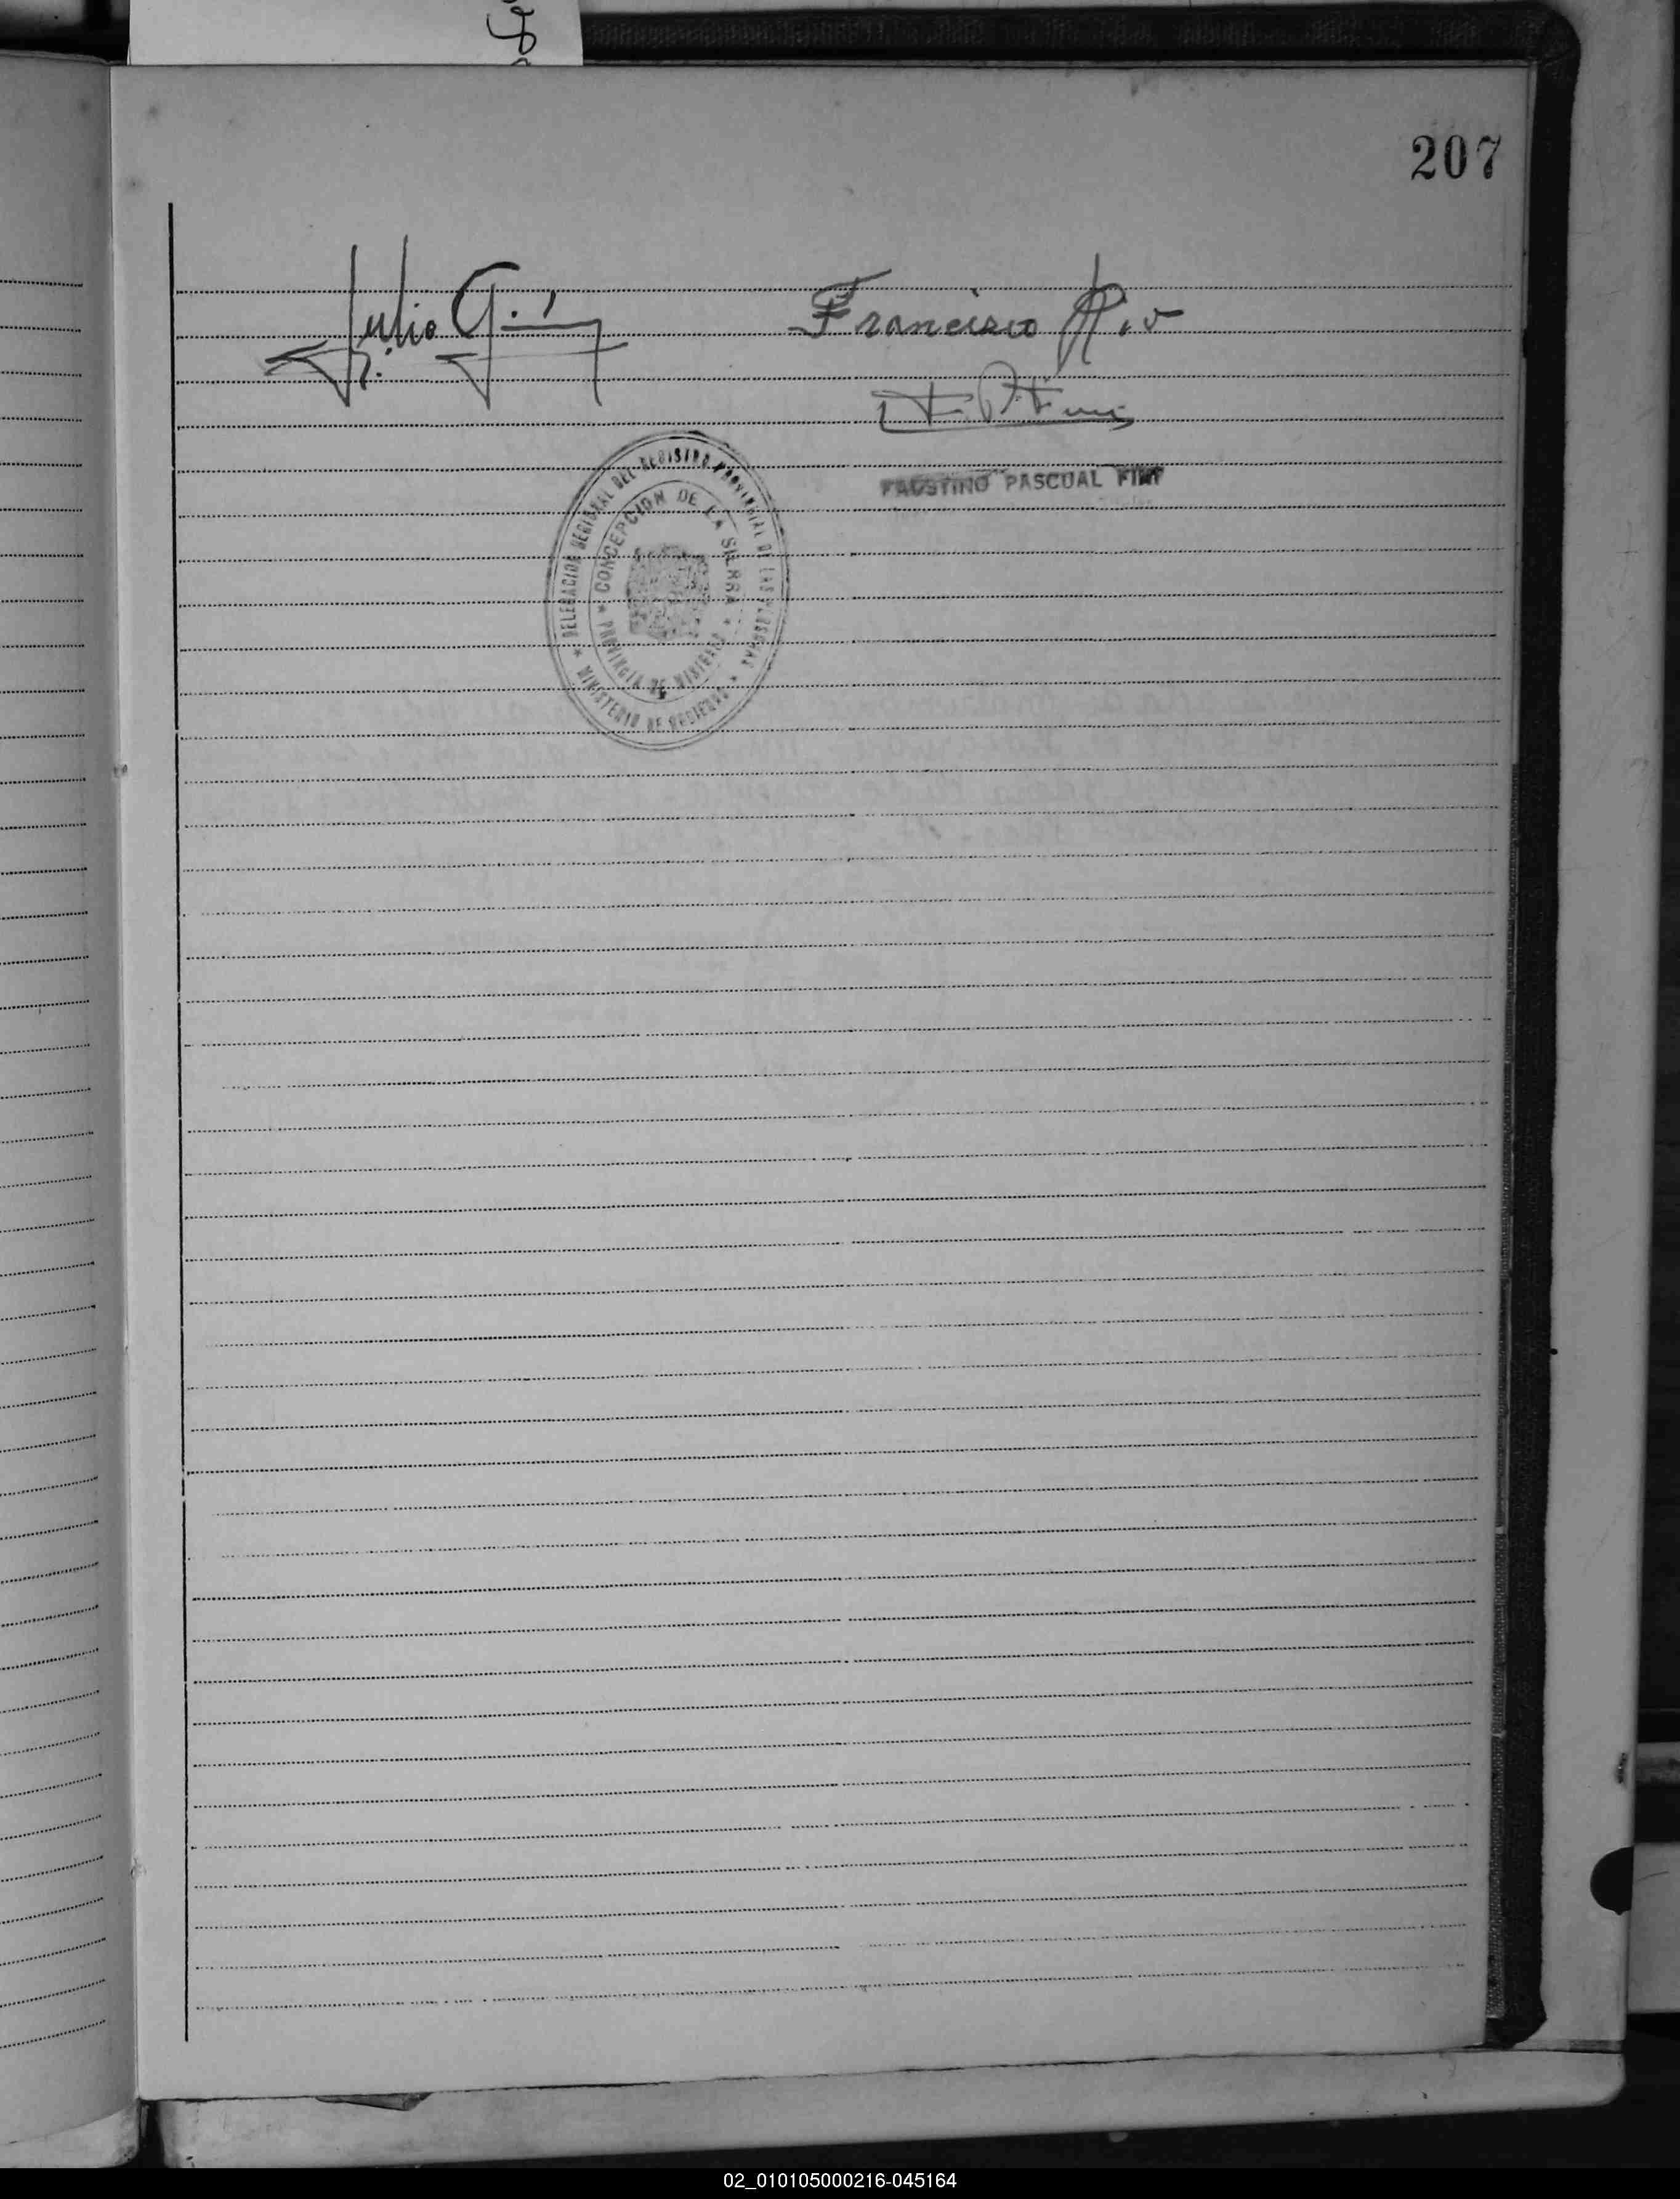 207
Julio
Francisco
FAUSTINO PASCUAL
DELEGACION REGIONAL DEL REGISTRO PROVINCIAL DE LAS PERSONAS
CONCEPCION DE LA SIERRA
PROVINCIA DE MISIONES
MINISTERIO DE GOBIERNO
02_010105000216-045164